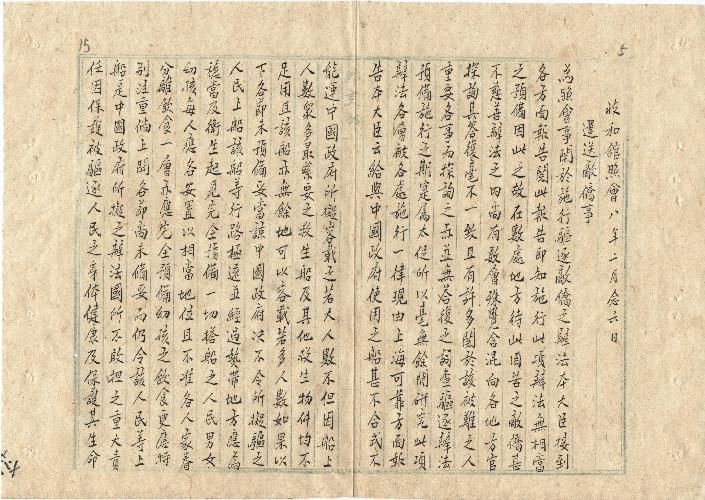 5
收和館照會 八年二月念六日
遣送敵僑事
為照會事關於施行驅逐敵僑之辦法本大臣接到
各方面報告閱此報告即知施行此項辦法無相當
之預備因此之故在數處地方待此困苦之敵僑甚
不慈善辦法之內尚有數會殊覺含混向各地方官
探詢其答復毫不一致且有許多關於該被難之人
重要各事而探詢之亦並無答復之詞查驅逐辦法
預備施行之期寔属太促所以毫無餘閒研究此項
辦法各會被各處施行一律現由上海可靠方面報
告本大臣云給與中國政府使用之船甚不合式不
15
能運中國政府所擬容載之若大人數不但因船上
人數衆多最緊要之救生船及其他救生物件均不
足用且該船亦無餘地可以容載若多人數如果以
下各節未預備妥當諒中國政府决不令所擬驅之
人民上船該船等行路極遠並經過熱帶地方應為
穩當及衛生起見完全預備一切搭船之人民男女
幼孩每人應各安置以相當地位且不准各人家眷
分離飲食一會亦應完全預備幼孩之飲食更應特
别注重倘上開各節尚未備妥而仍令該人民等上
船是中國政府所擬之辦法國所不敢担之重大責
任因保護被驅逐人民之身体健康及保護其生命